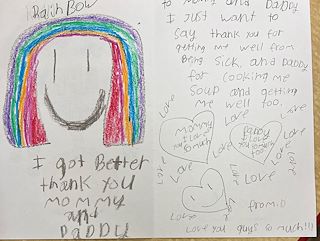 RainBow
I got Better
thank you
mommy
and
DaDDy
to mommy and DaDDy
I Just want to
Say thank you for
getting me well from
Being Sick, and Daddy
for cooking me
Soup and getting
me well too.
Love
Love
Love
Love
mommy
I Love
you
so much
Daddy
I Love
you so much
too
Love
Love
Love
Love
Love
Love
Love
from:
Love you guys so much!!!